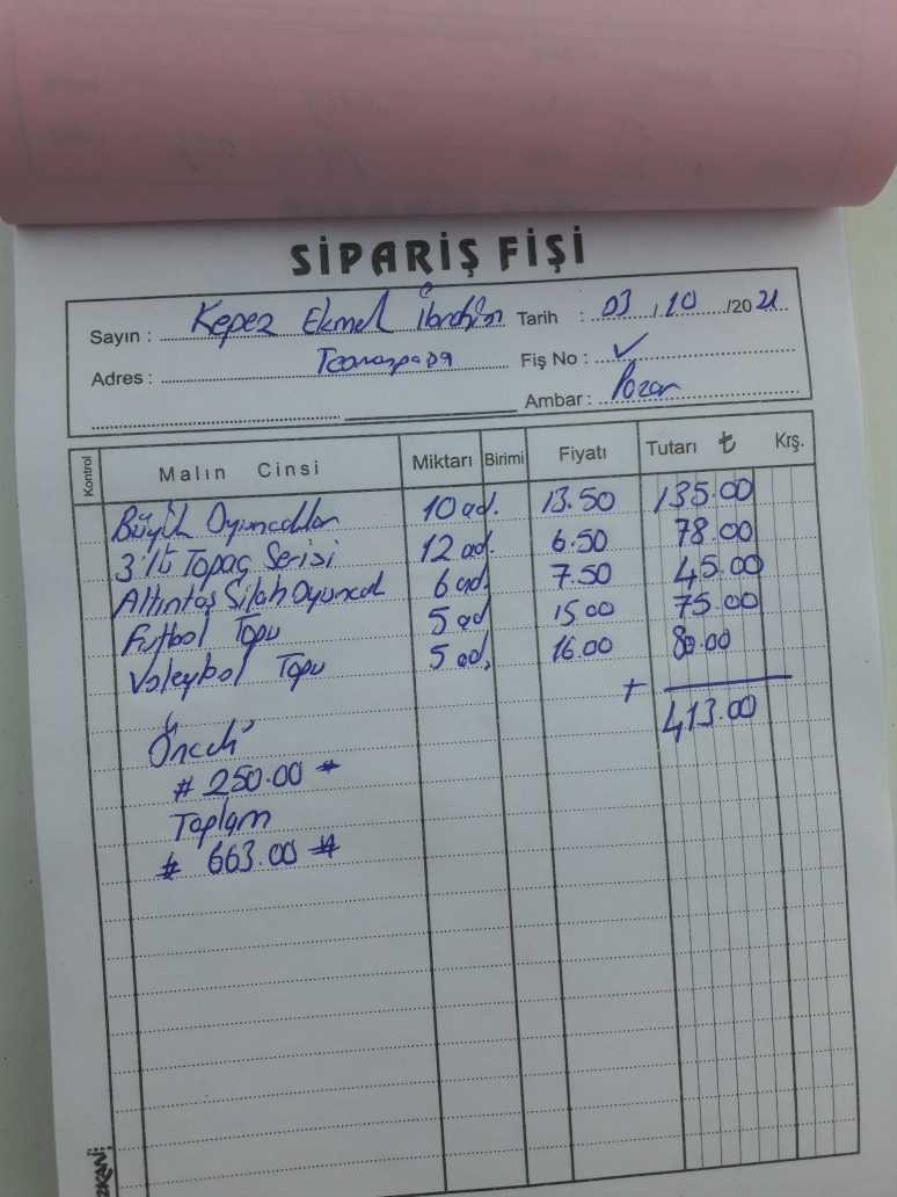 SİPARİŞ FİŞİ
Sayın : Kepez Ekmek İbrahim Tarih : 03 / 10 /2021
Adres : Fiş No : ✓
Ambar : Pazar
Kontrol Malın Cinsi Miktarı Birimi Fiyatı Tutarı ₺ Krş.
Büyük Oyuncaklar 10 ad. 13.50 135.00
3'lü Topaç Serisi 12 ad. 6.50 78.00
Altıntaş Silah Oyuncak 6 ad. 7.50 45.00
Futbol Topu 5 ad 15.00 75.00
Voleybol Topu 5 ad. 16.00 80.00
+ 413.00
Önceki
# 250.00 #
Toplam
# 663.00 #